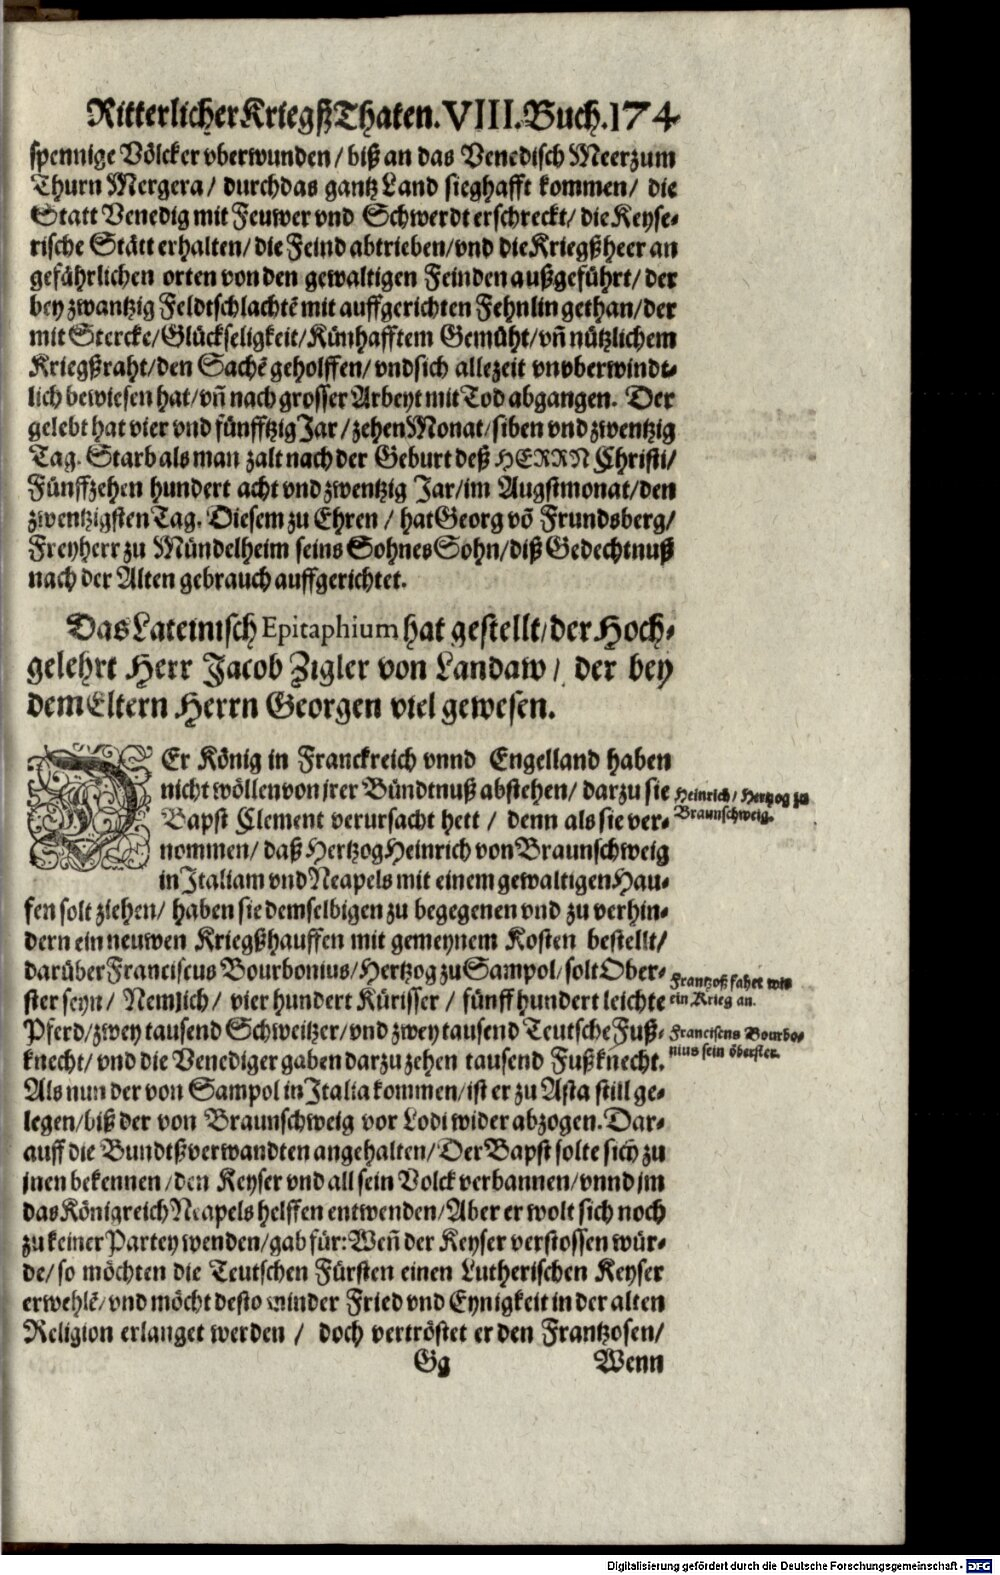 Ritterlicher Kriegß Thaten. VIII. Buch. 174
spennige Völcker vberwunden / biß an das Venedisch Meer zum
Thurn Mergera / durch das gantz Land sieghafft kommen / die
Statt Venedig mit Feuwer vnd Schwerdt erschreckt / die Keyse-
rische Stätt erhalten / die Feind abtrieben / vnd die Kriegßheer an
gefährlichen orten von den gewaltigen Feinden außgeführt / der
bey zwantzig Feldtschlachtē mit auffgerichten Fehnlin gethan / der
mit Stercke / Glückseligkeit / Künhafftem Gemüht / vñ nützlichem
Kriegßraht / den Sachē geholffen / vnd sich allezeit vnvberwindt-
lich bewiesen hat / vñ nach grosser Arbeyt mit Tod abgangen. Der
gelebt hat vier vnd fünfftzig Jar / zehen Monat / siben vnd zwentzig
Tag. Starb als man zalt nach der Geburt deß HERRN Christi /
Fünffzehen hundert acht vnd zwentzig Jar / im Augstmonat / den
zwentzigsten Tag. Diesem zu Ehren / hat Georg võ Frundsberg /
Freyherr zu Mündelheim seins Sohnes Sohn / diß Gedechtnuß
nach der Alten gebrauch auffgerichtet.
Das Lateinisch Epitaphium hat gestellt / der Hoch-
gelehrt Herr Jacob Zigler von Landaw / der bey
dem Eltern Herrn Georgen viel gewesen.
DEr König in Franckreich vnnd Engelland haben
nicht wöllen von jrer Bündtnuß abstehen / darzu sie
Bapst Clement verursacht hett / denn als sie ver-
nommen / daß Hertzog Heinrich von Braunschweig
in Italiam vnd Neapels mit einem gewaltigen Hau-
fen solt ziehen / haben sie demselbigen zu begegenen vnd zu verhin-
dern ein neuwen Kriegßhauffen mit gemeynem Kosten bestellt /
darüber Franciscus Bourbonius / Hertzog zu Sampol / solt Ober-
ster seyn / Nemlich / vier hundert Kürisser / fünff hundert leichte
Pferd / zwey tausend Schweitzer / vnd zwey tausend Teutsche Fuß-
knecht / vnd die Venediger gaben darzu zehen tausend Fußknecht.
Als nun der von Sampol in Italia kommen / ist er zu Asta still ge-
legen / biß der von Braunschweig vor Lodi wider abzogen. Dar-
auff die Bundtßverwandten angehalten / Der Bapst solte sich zu
jnen bekennen / den Keyser vnd all sein Volck verbannen / vnnd jm
das Königreich Neapels helffen entwenden / Aber er wolt sich noch
zu keiner Partey wenden / gab für: Weñ der Keyser verstossen wür-
de / so möchten die Teutschen Fürsten einen Lutherischen Keyser
erwehlē / vnd möcht desto minder Fried vnd Eynigkeit in der alten
Religion erlanget werden / doch vertröstet er den Frantzosen /
Gg Wenn
Heinrich / Hertzog zu
Braunschweig.
Frantzoß fahet wie
ein Krieg an.
Franciscus Bourbo-
nius sein öberster.
Digitalisierung gefördert durch die Deutsche Forschungsgemeinschaft - DFG